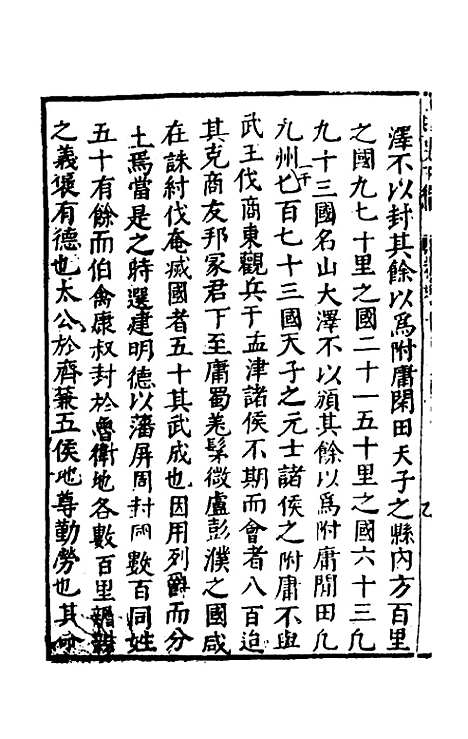 澤不以封其餘以爲附庸閑田天子之縣內方百里
之國九七十里之國二十一五十里之國六十三凡
九十三國名山大澤不以頒其餘以爲附庸閒田凡
九州一千七百七十三國天子之元士諸侯之附庸不與
武王伐商東觀兵于孟津諸侯不期而會者八百迨
其克商友邦冢君下至庸蜀羌髳微盧彭濮之國咸
在誅紂伐奄滅國者五十其武成也因用列爵而分
土焉當是之時選建明德以潘屏周封國數百同姓
五十有餘而伯禽康叔封於魯衛地各數百里親親
之義襃有德也太公於齊兼五侯地尊勤勞也其